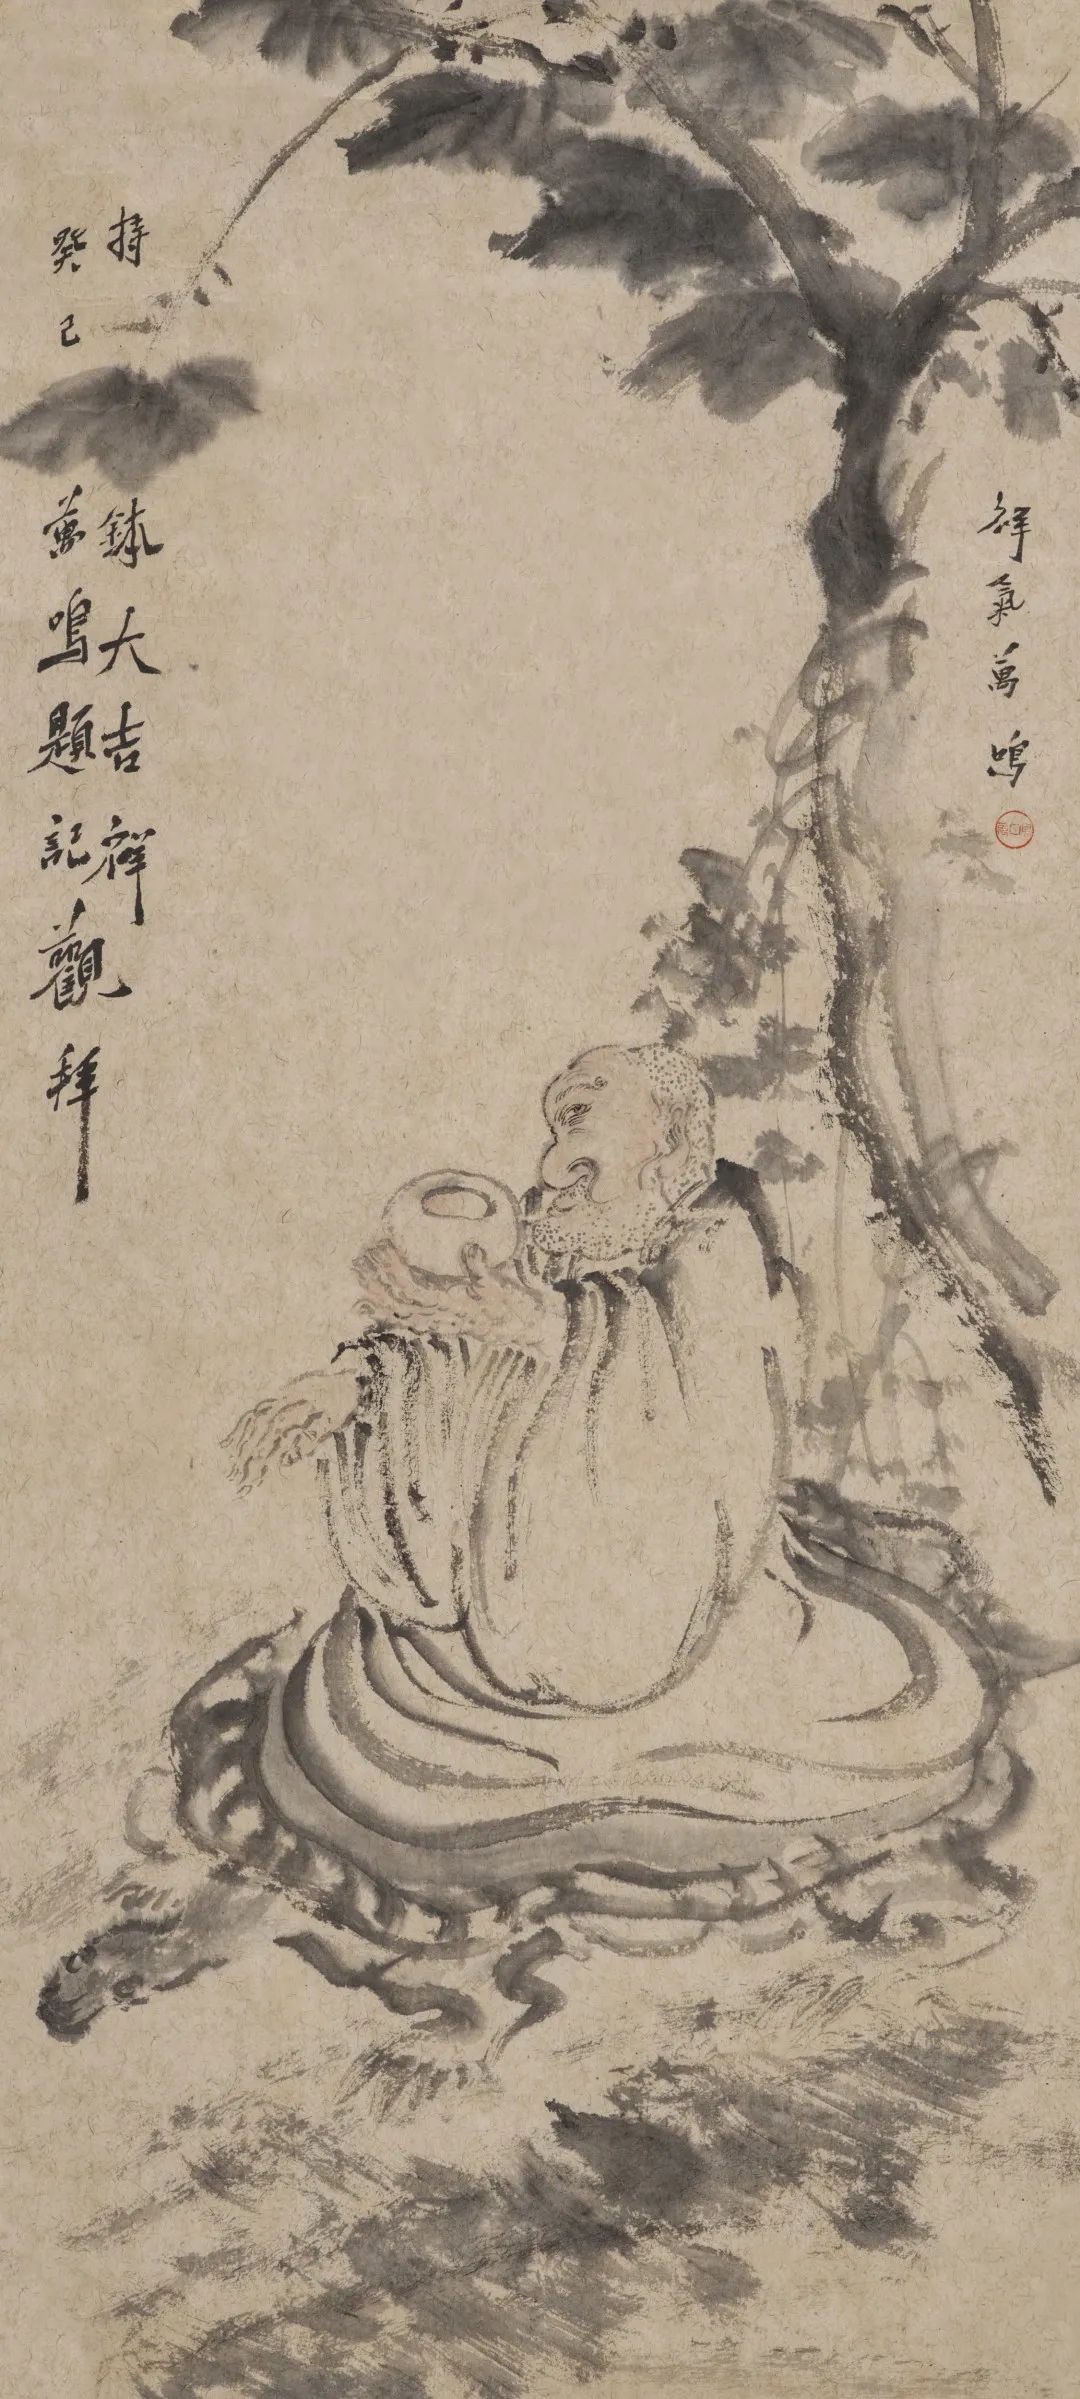 祥氣萬鳴
持鉢大吉祥
癸巳萬鳴題記觀拜